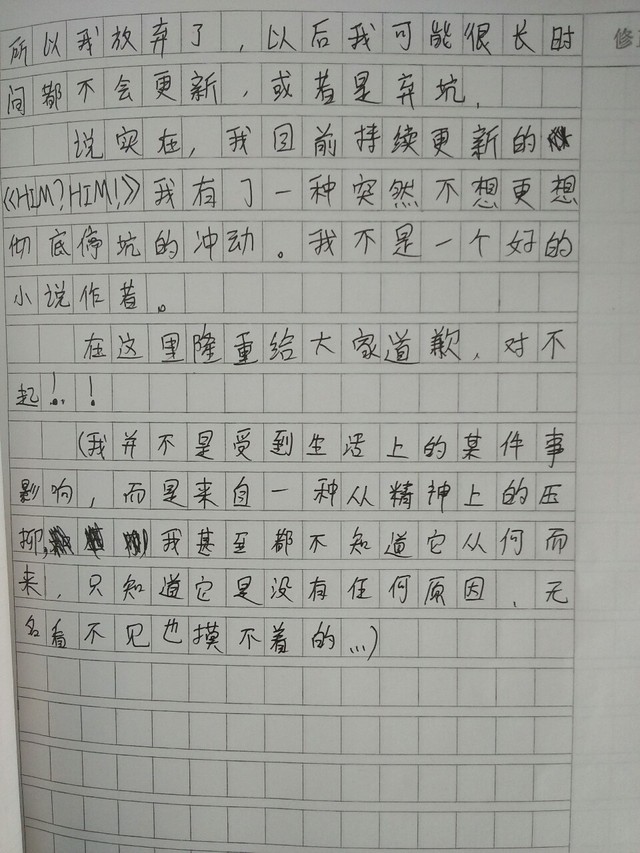 所以我放弃了，以后我可能很长时
间都不会更新，或者是弃坑，
说实在，我目前持续更新的
《HIM?HIM!》我有了一种突然不想更想
彻底停坑的冲动。我不是一个好的
小说作者。
在这里隆重给大家道歉，对不
起!..!
(我并不是受到生活上的某件事
影响，而是来自一种从精神上的压
抑，我甚至都不知道它从何而
来，只知道它是没有任何原因、无
名看不见也摸不着的...)
修